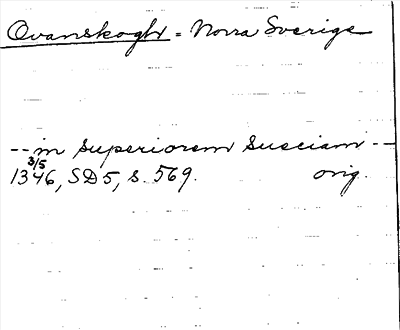 Ovanskogh = Norra Sverige
-- in superiorem Sueciam --
3/5
1346, SD5, s. 569. orig.